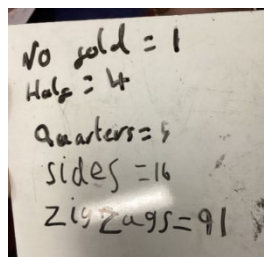 No gold = 1
Half = 4
Quarters = 5
sides = 16
zigzags = 91